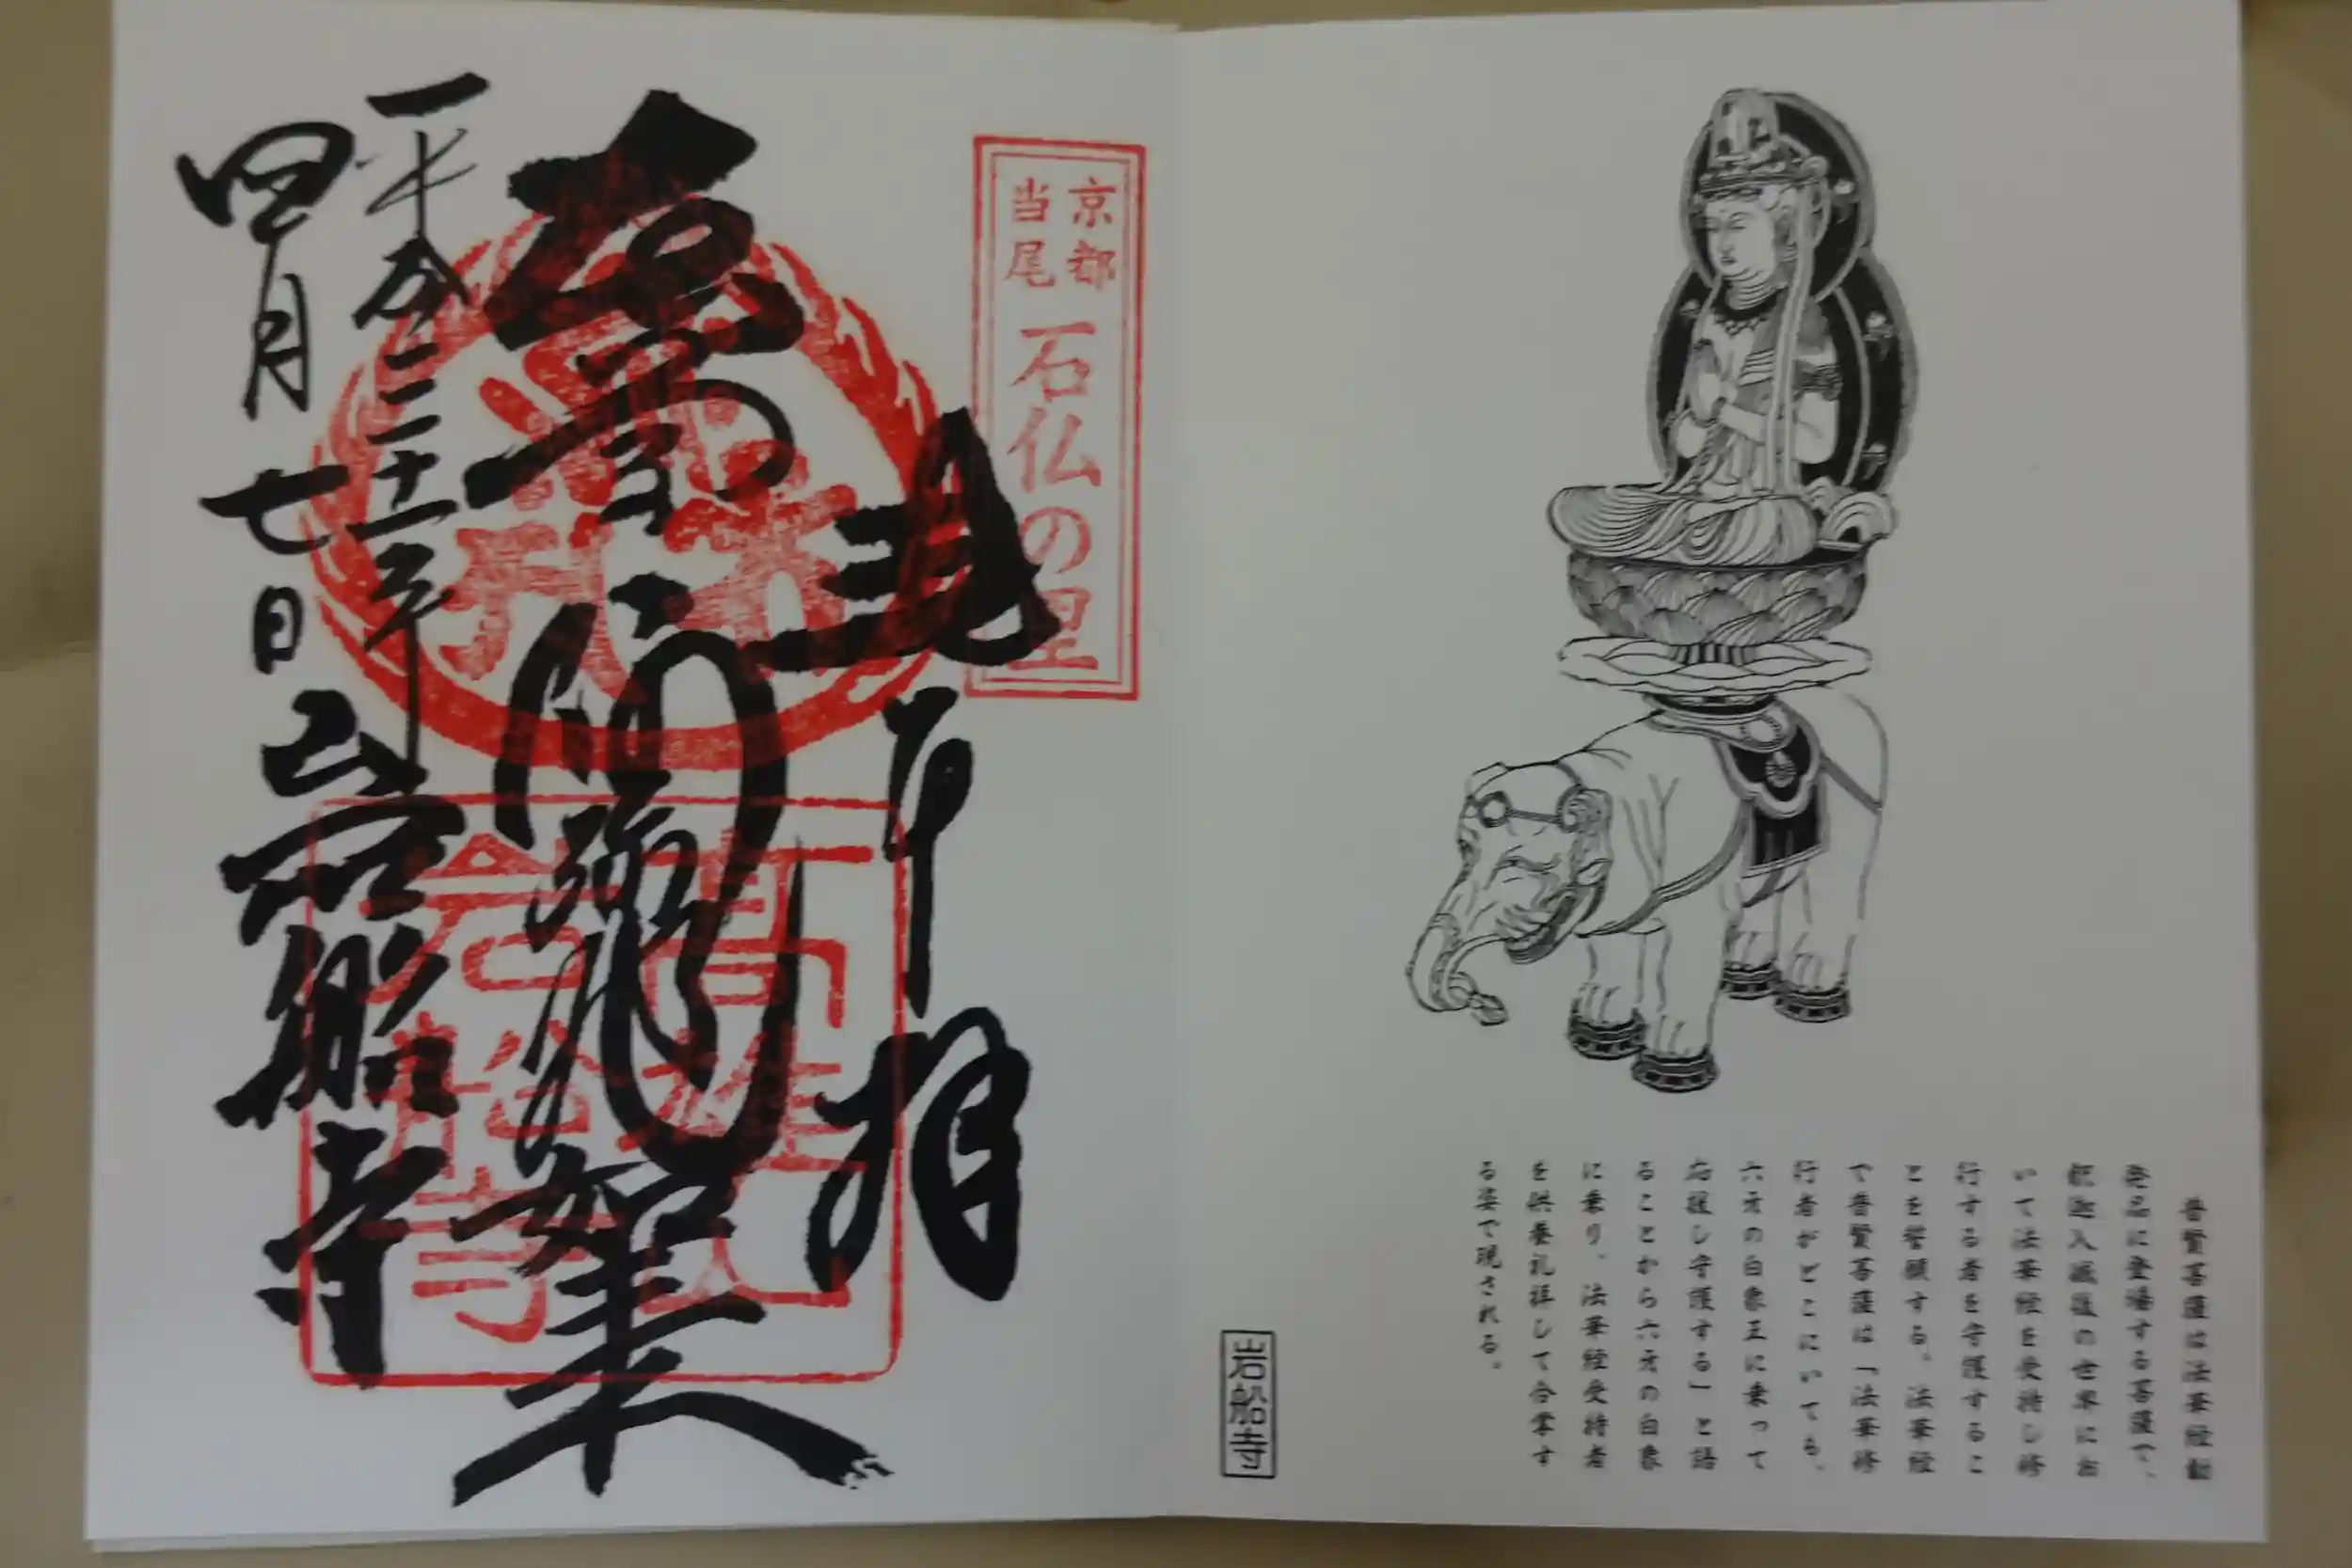 普賢菩薩は法華経勧
発品に登場する菩薩で、
釈迦入滅後の世界にお
いて法華経を受持し修
行する者を守護するこ
とを誓願する。法華経
で普賢菩薩は「法華修
行者がどこにいても、
六牙の白象王に乗って
応援し守護する」と語
ることから六牙の白象
に乗り、法華経受持者
を供養礼拝して合掌す
る姿で現される。
岩船寺
京都
当尾
石仏の里
拝
阿弥陀如来
平成三十一年
四月七日
岩船寺